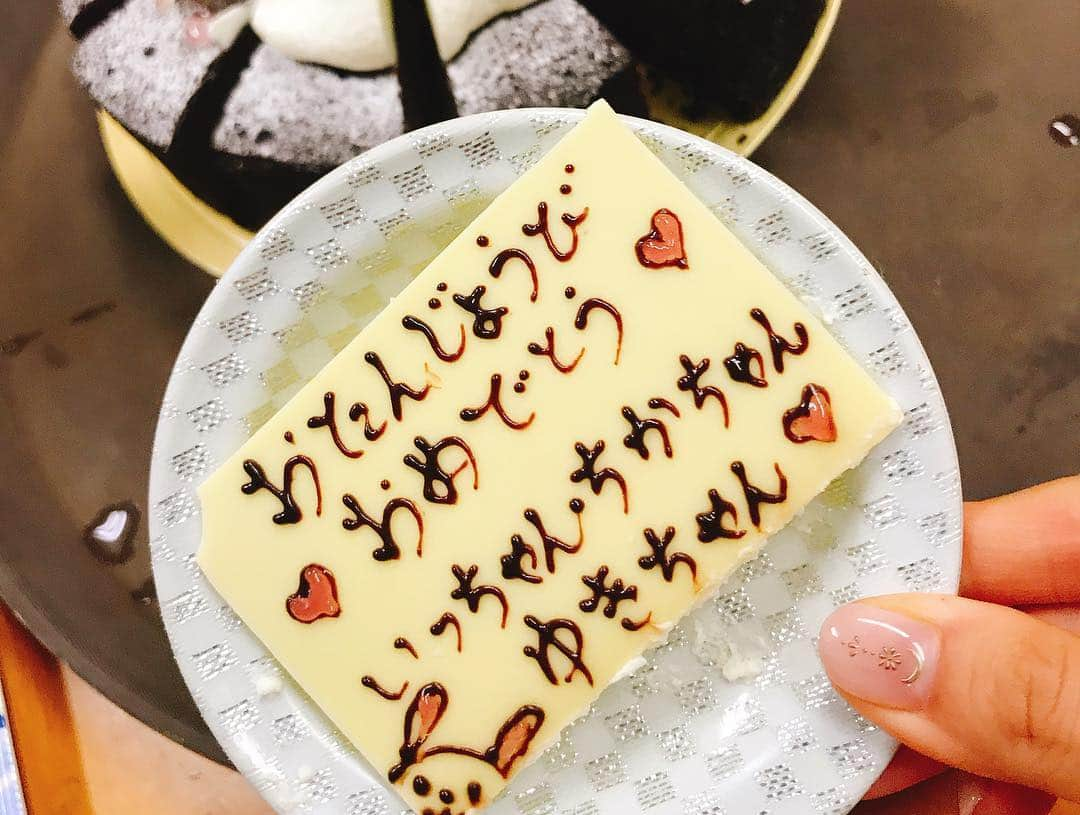 おたんじょうび
おめでとう
いっちゃん・ちかちゃん
ゆきちゃん